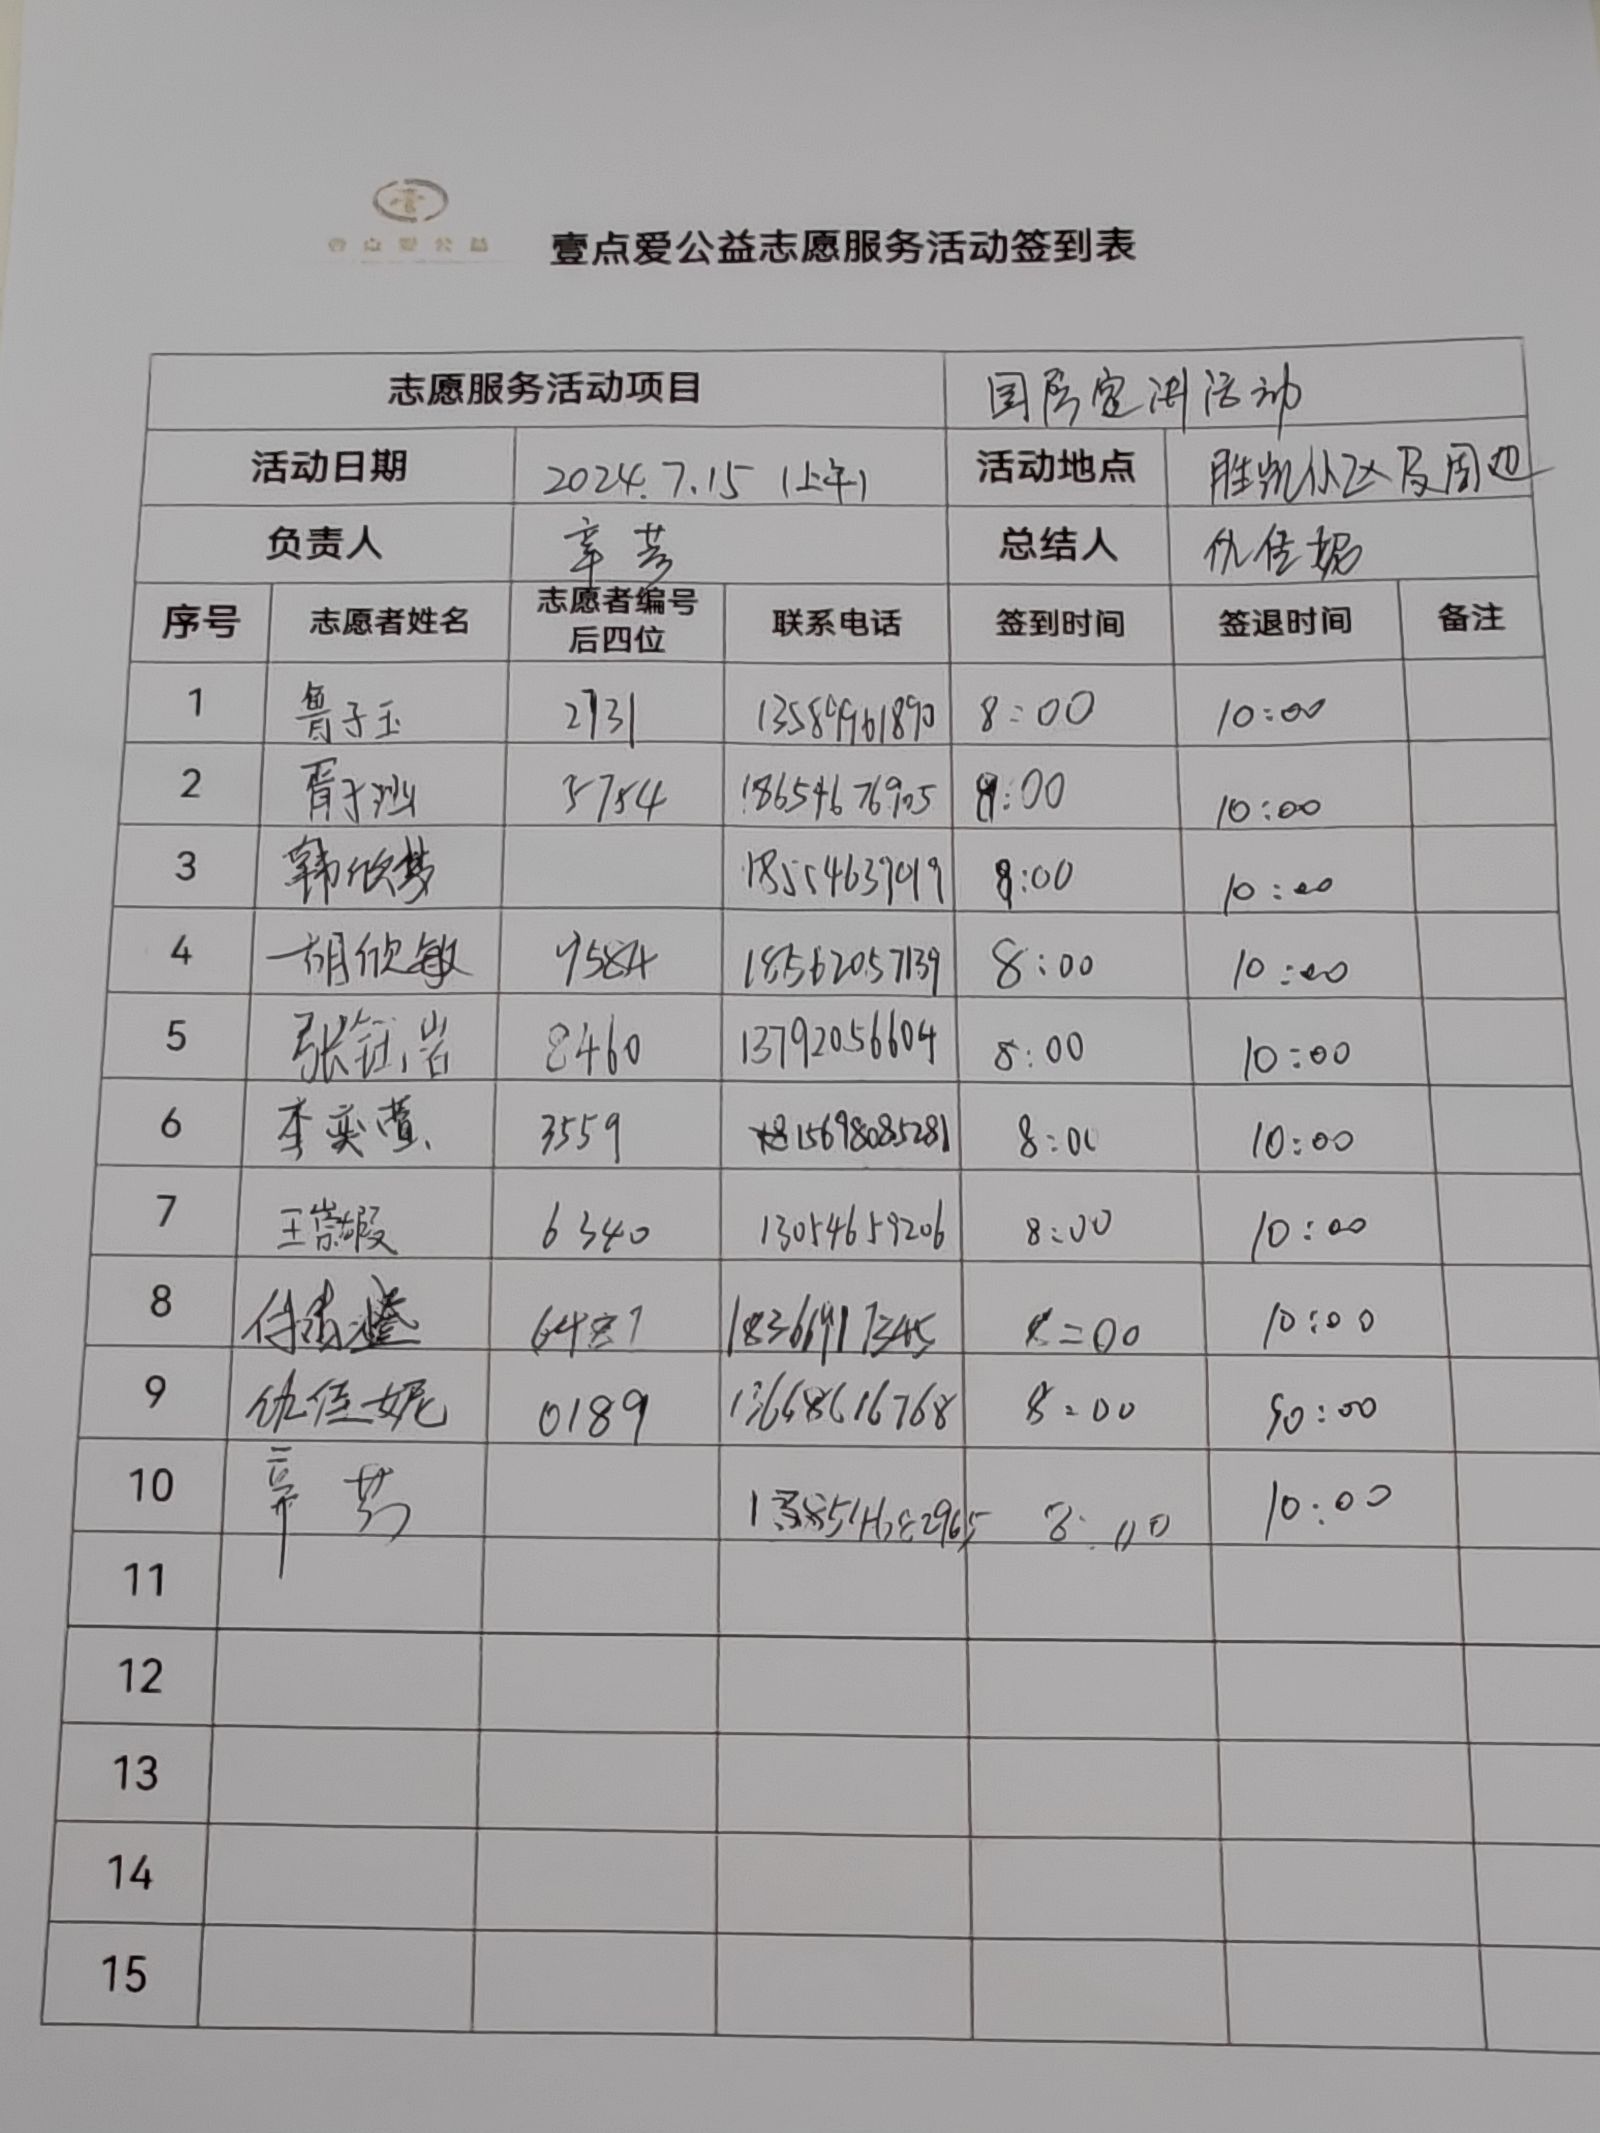 壹点爱公益
壹点爱公益志愿服务活动签到表
志愿服务活动项目 国医宣讲活动
活动日期 2024.7.15 (上午) 活动地点 胜凯小区及周边
负责人 辛芳 总结人 仇佳妮
序号 志愿者姓名 志愿者编号后四位 联系电话 签到时间 签退时间 备注
1 鲁子玉 2731 13589961890 8:00 10:00
2 胥子 5754 8:00 10:00
3 韩欣梦 8:00 10:00
4 胡欣敏 9584 18562057139 8:00 10:00
5 张钰岩 8460 13792056604 8:00 10:00
6 李奕萱 3559 15698085281 8:00 10:00
7 王崇嘏 6340 13054659206 8:00 10:00
8 6487 8:00 10:00
9 仇佳妮 0189 13648616768 8:00 10:00
10 辛芳 8:00 10:00
11
12
13
14
15